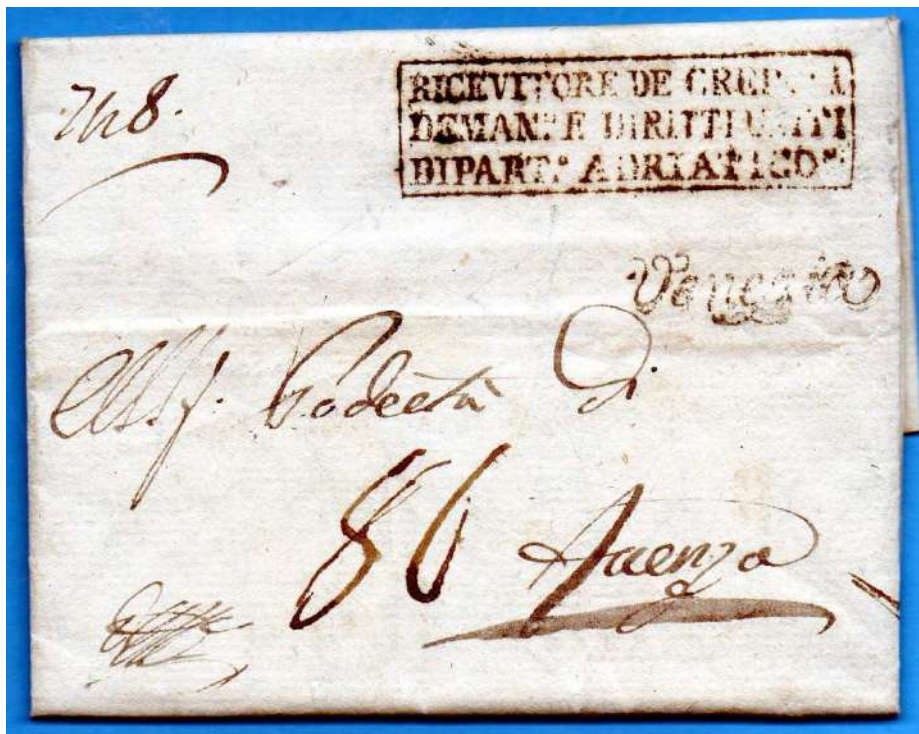 RICEVITORE DE
DEMAN.E DIRITTI UNITI
DIPART.º ADRIATICO
Venezia
Podestà Di
86 Faenza